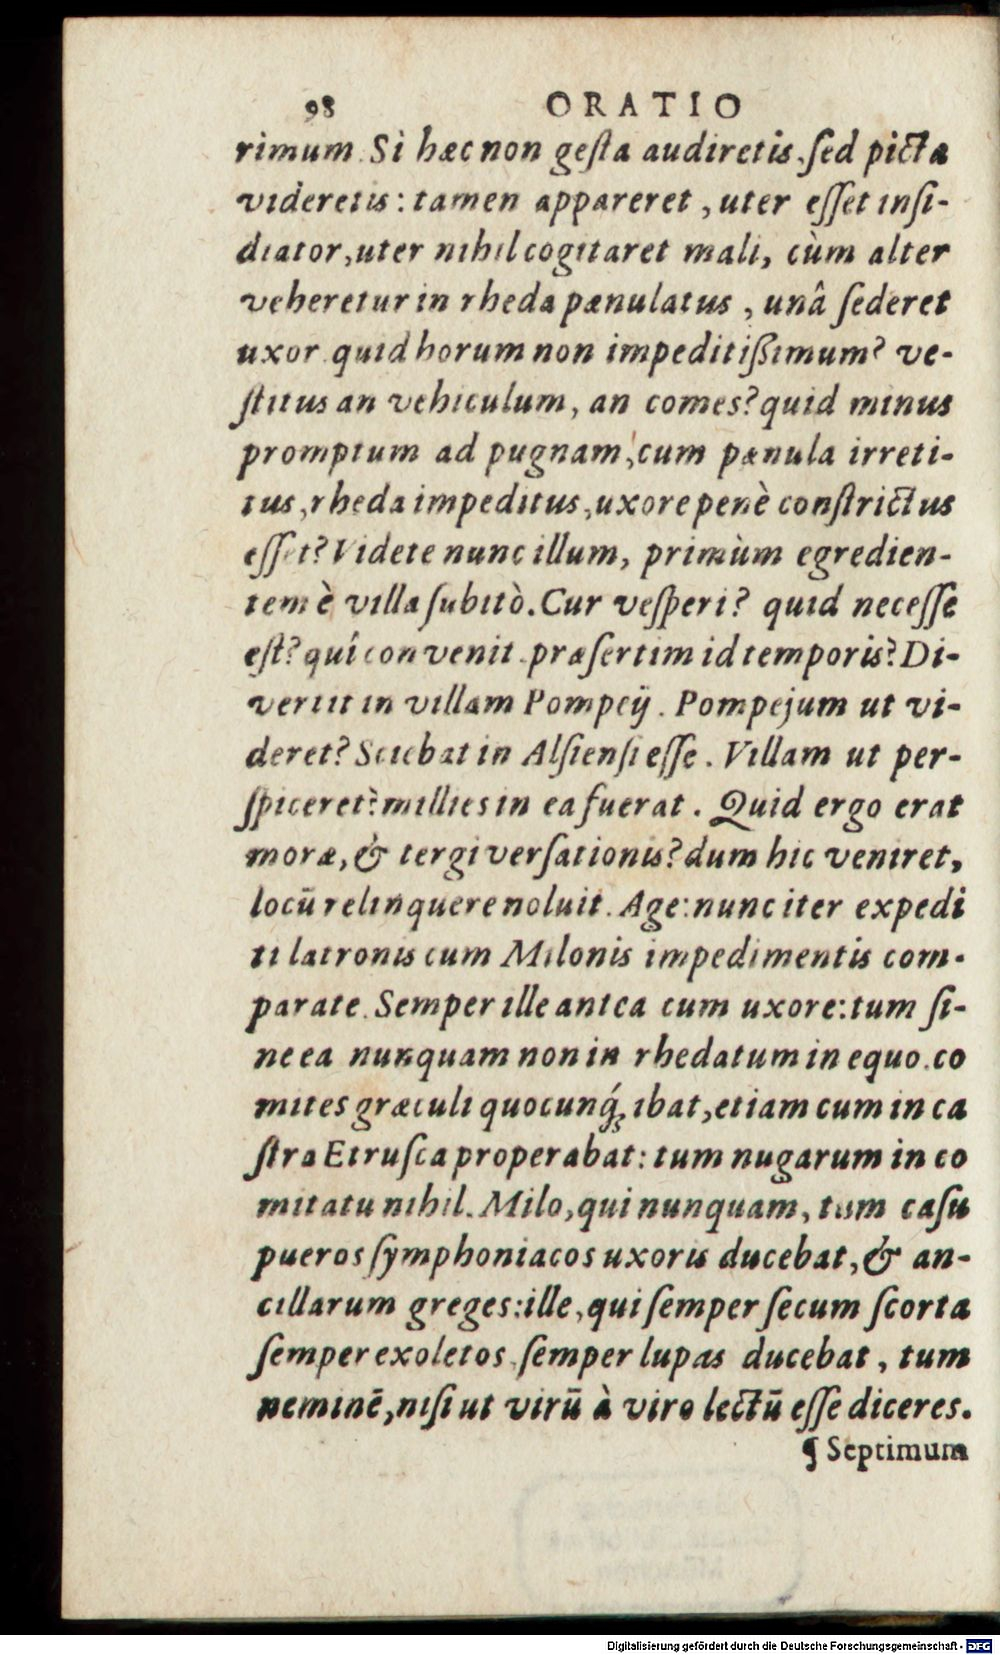 98 ORATIO
rimum. Si hæc non geſta audiretis, ſed picta
videretis: tamen appareret, uter eſſet inſi-
diator, uter nihil cogitaret mali, cùm alter
veheretur in rheda pænulatus, unâ ſederet
uxor. quid horum non impeditiſſimum? ve-
ſtitus an vehiculum, an comes? quid minus
promptum ad pugnam, cum pænula irreti-
tus, rheda impeditus, uxore penè conſtrictus
eſſet? Videte nunc illum, primùm egredien-
tem è villa ſubitò. Cur veſperi? quid neceſſe
eſt? quî convenit. præſertim id temporis? Di-
vertit in villam Pompeij. Pompejum ut vi-
deret? Sciebat in Alſienſi eſſe. Villam ut per-
ſpiceret? millies in ea fuerat. Quid ergo erat
moræ, & tergiverſationis? dum hic veniret,
locū relinquere noluit. Age: nunc iter expedi
ti latronis cum Milonis impedimentis com-
parate. Semper ille antea cum uxore: tum ſi-
ne ea nunquam non in rheda tum in equo. co
mites græculi quocunq́; ibat, etiam cum in ca
ſtra Etruſca properabat: tum nugarum in co
mitatu nihil. Milo, qui nunquam, tum caſu
pueros ſymphoniacos uxoris ducebat, & an-
cillarum greges: ille, qui ſemper ſecum ſcorta
ſemper exoletos, ſemper lupas ducebat, tum
neminē, niſi ut virū à viro lectū eſſe diceres.
¶ Septimum
Digitalisierung gefördert durch die Deutsche Forschungsgemeinschaft - DFG